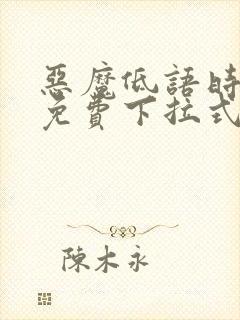 惡魔低語時
免費下拉式
陳木永